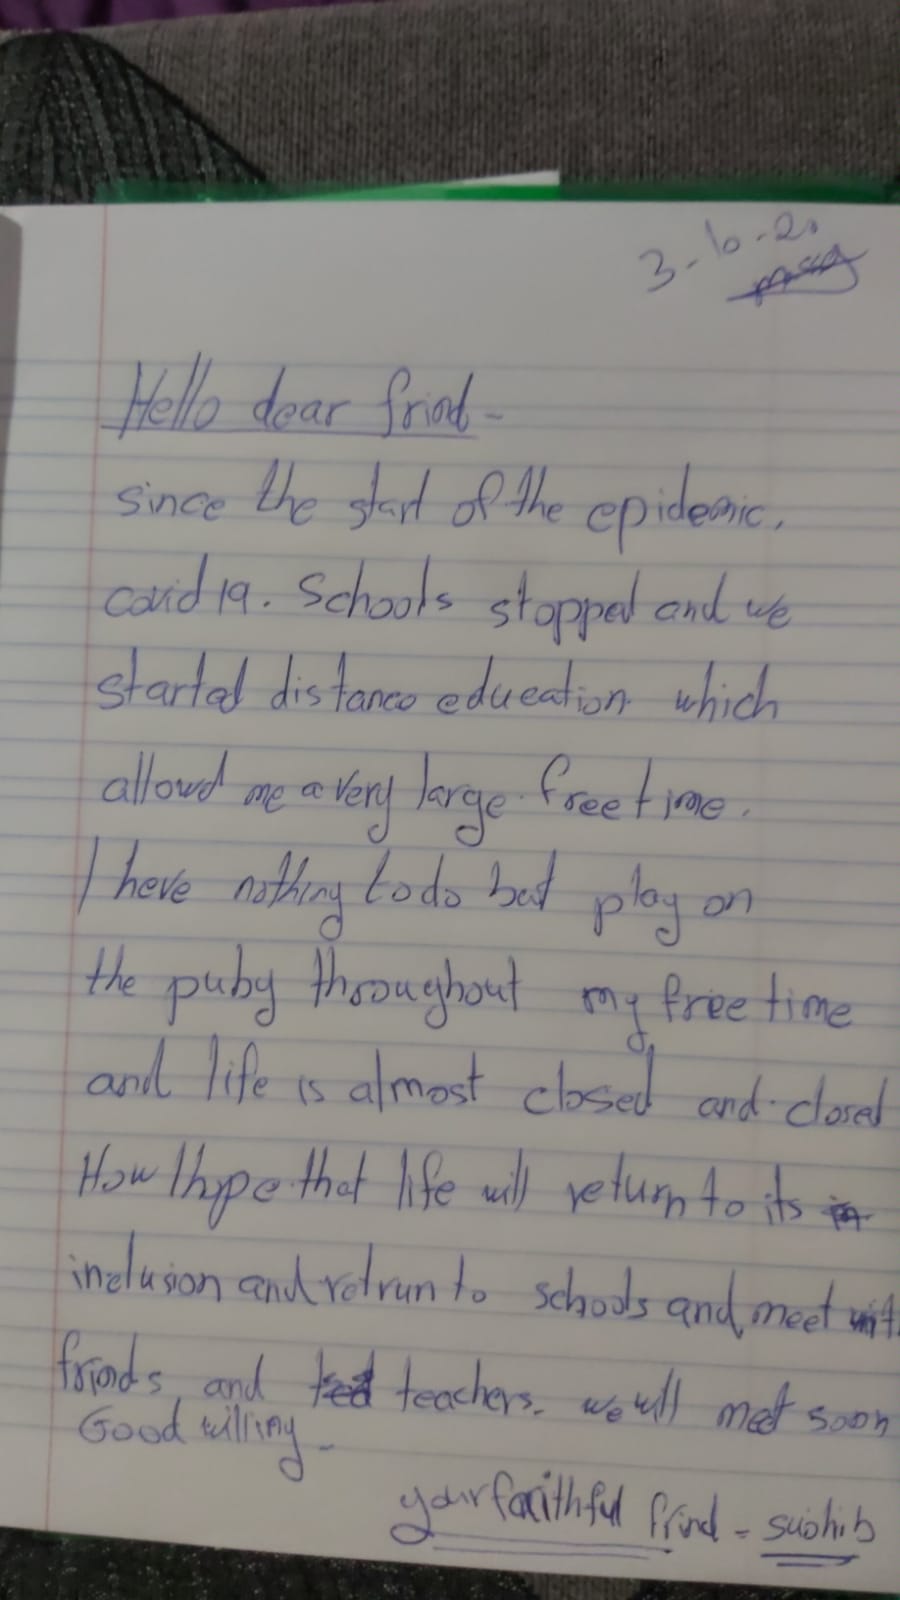 3-6-20
Hello dear frind -
since the start of the epidemic.
covid 19. Schools stopped and we
started distance education which
allowd me a very large free time.
I heve nothing to do but play on
the puby throoughout my free time
and life is almost closed and closed
How I hype that life will return to its
inclusion and retrun to schools and meet wit
frinds and teachers. we will met soon
Good willing -
your faithful frind - suohib